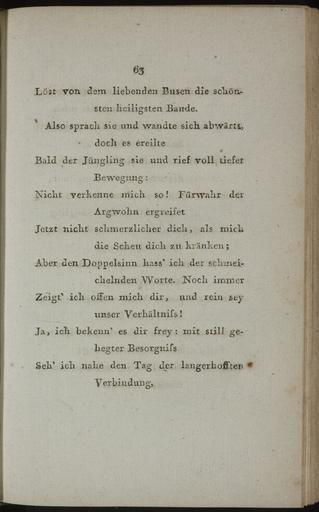 63
Löst von dem liebenden Busen die schön-
sten heiligsten Bande.
Also sprach sie und wandte sich abwärts,
doch es ereilte
Bald der Jüngling sie und rief voll tiefer
Bewegung:
Nicht verkenne mich so! Fürwahr der
Argwohn ergreifet
Jetzt nicht schmerzlicher dich, als mich
die Scheu dich zu kränken;
Aber den Doppelsinn hass' ich der schmei-
chelnden Worte. Noch immer
Zeigt' ich offen mich dir, und rein sey
unser Verhältniſs!
Ja, ich bekenn' es dir frey: mit still ge-
hegter Besorgniſs
Seh' ich nahe den Tag der langerhofften
Verbindung,